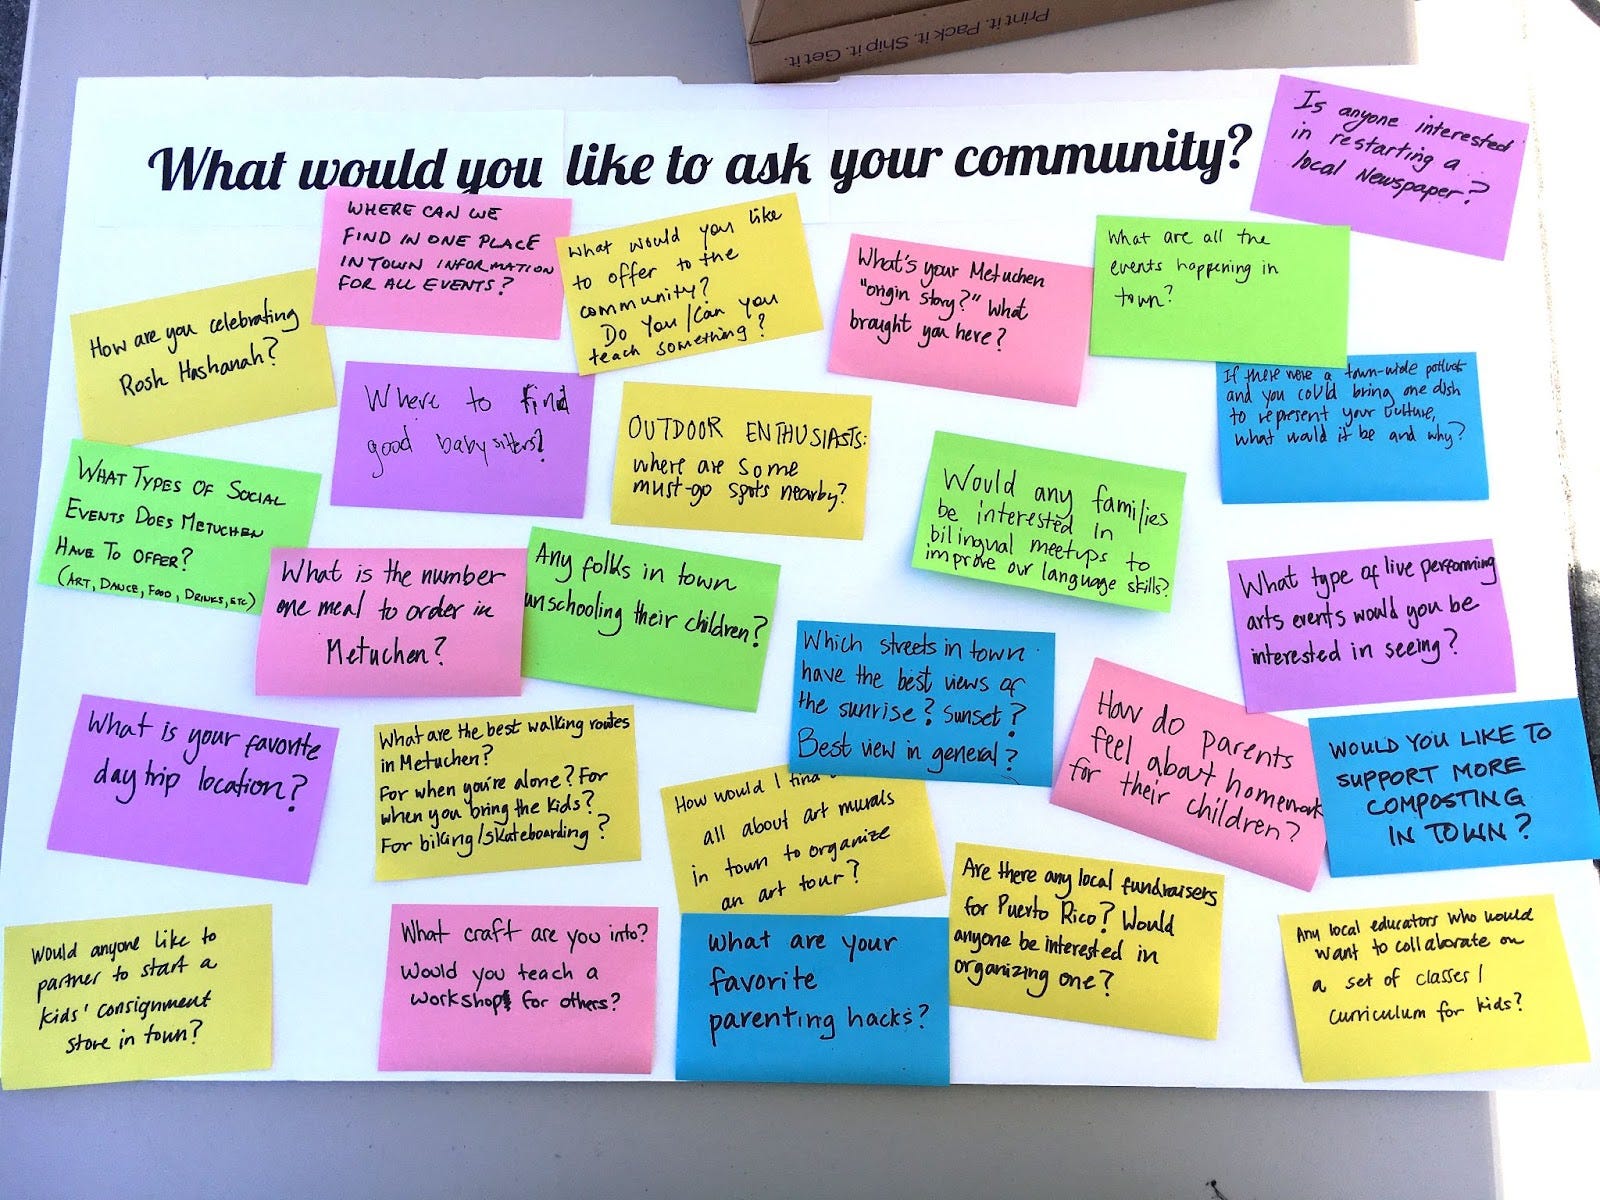 Print it. Pack it. Ship it. Get it.
What would you like to ask your community?
Is anyone interested
in restarting a
local Newspaper?
WHERE CAN WE
FIND IN ONE PLACE
IN TOWN INFORMATION
FOR ALL EVENTS?
What would you like
to offer to the
community?
Do You/Can you
teach something?
What's your Metuchen
"origin story?" What
brought you here?
What are all the
events happening in
town?
How are you celebrating
Rosh Hashanah?
Where to find
good babysitters?
OUTDOOR ENTHUSIASTS:
where are some
must-go spots nearby?
If there were a town-wide potluck
and you could bring one dish
to represent your culture,
what would it be and why?
WHAT TYPES OF SOCIAL
EVENTS DOES METUCHEN
HAVE TO OFFER?
(ART, DANCE, FOOD, DRINKS, ETC)
Would any families
be interested in
bilingual meetups to
improve our language skills?
What is the number
one meal to order in
Metuchen?
Any folks in town
unschooling their children?
What type of live performing
arts events would you be
interested in seeing?
Which streets in town
have the best views of
the sunrise? Sunset?
Best view in general?
How do parents
feel about homework
for their children?
What is your favorite
day trip location?
What are the best walking routes
in Metuchen?
For when you're alone? For
when you bring the kids?
For biking/skateboarding?
WOULD YOU LIKE TO
SUPPORT MORE
COMPOSTING
IN TOWN?
How would I find
all about art murals
in town to organize
an art tour?
Are there any local fundraisers
for Puerto Rico? Would
anyone be interested in
organizing one?
Would anyone like to
partner to start a
kids' consignment
store in town?
What craft are you into?
Would you teach a
workshop for others?
What are your
favorite
parenting hacks?
Any local educators who would
want to collaborate on
a set of classes/
curriculum for kids?